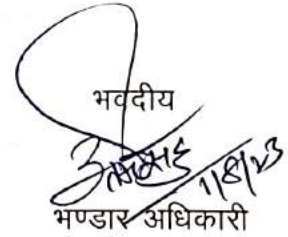 भवदीय
1/8/23
भण्डार अधिकारी